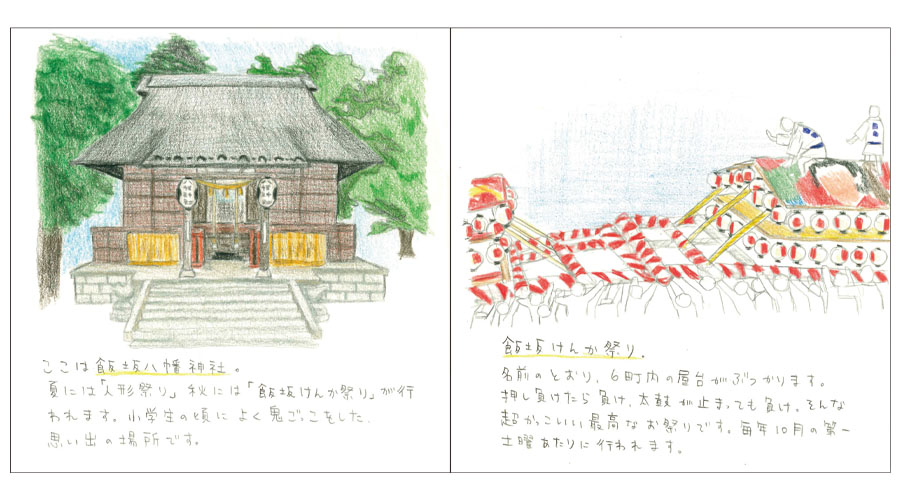 ここは飯坂八幡神社。
夏には「人形祭り」秋には「飯坂けんか祭り」が行
われます。小学生の頃によく鬼ごっこをした、
思い出の場所です。
飯坂けんか祭り。
名前のとおり、6町内の屋台がぶつかります。
押し負けたら負け、太鼓が止まっても負け。そんな
超かっこいい最高なお祭りです。毎年10月の第一
土曜あたりに行われます。